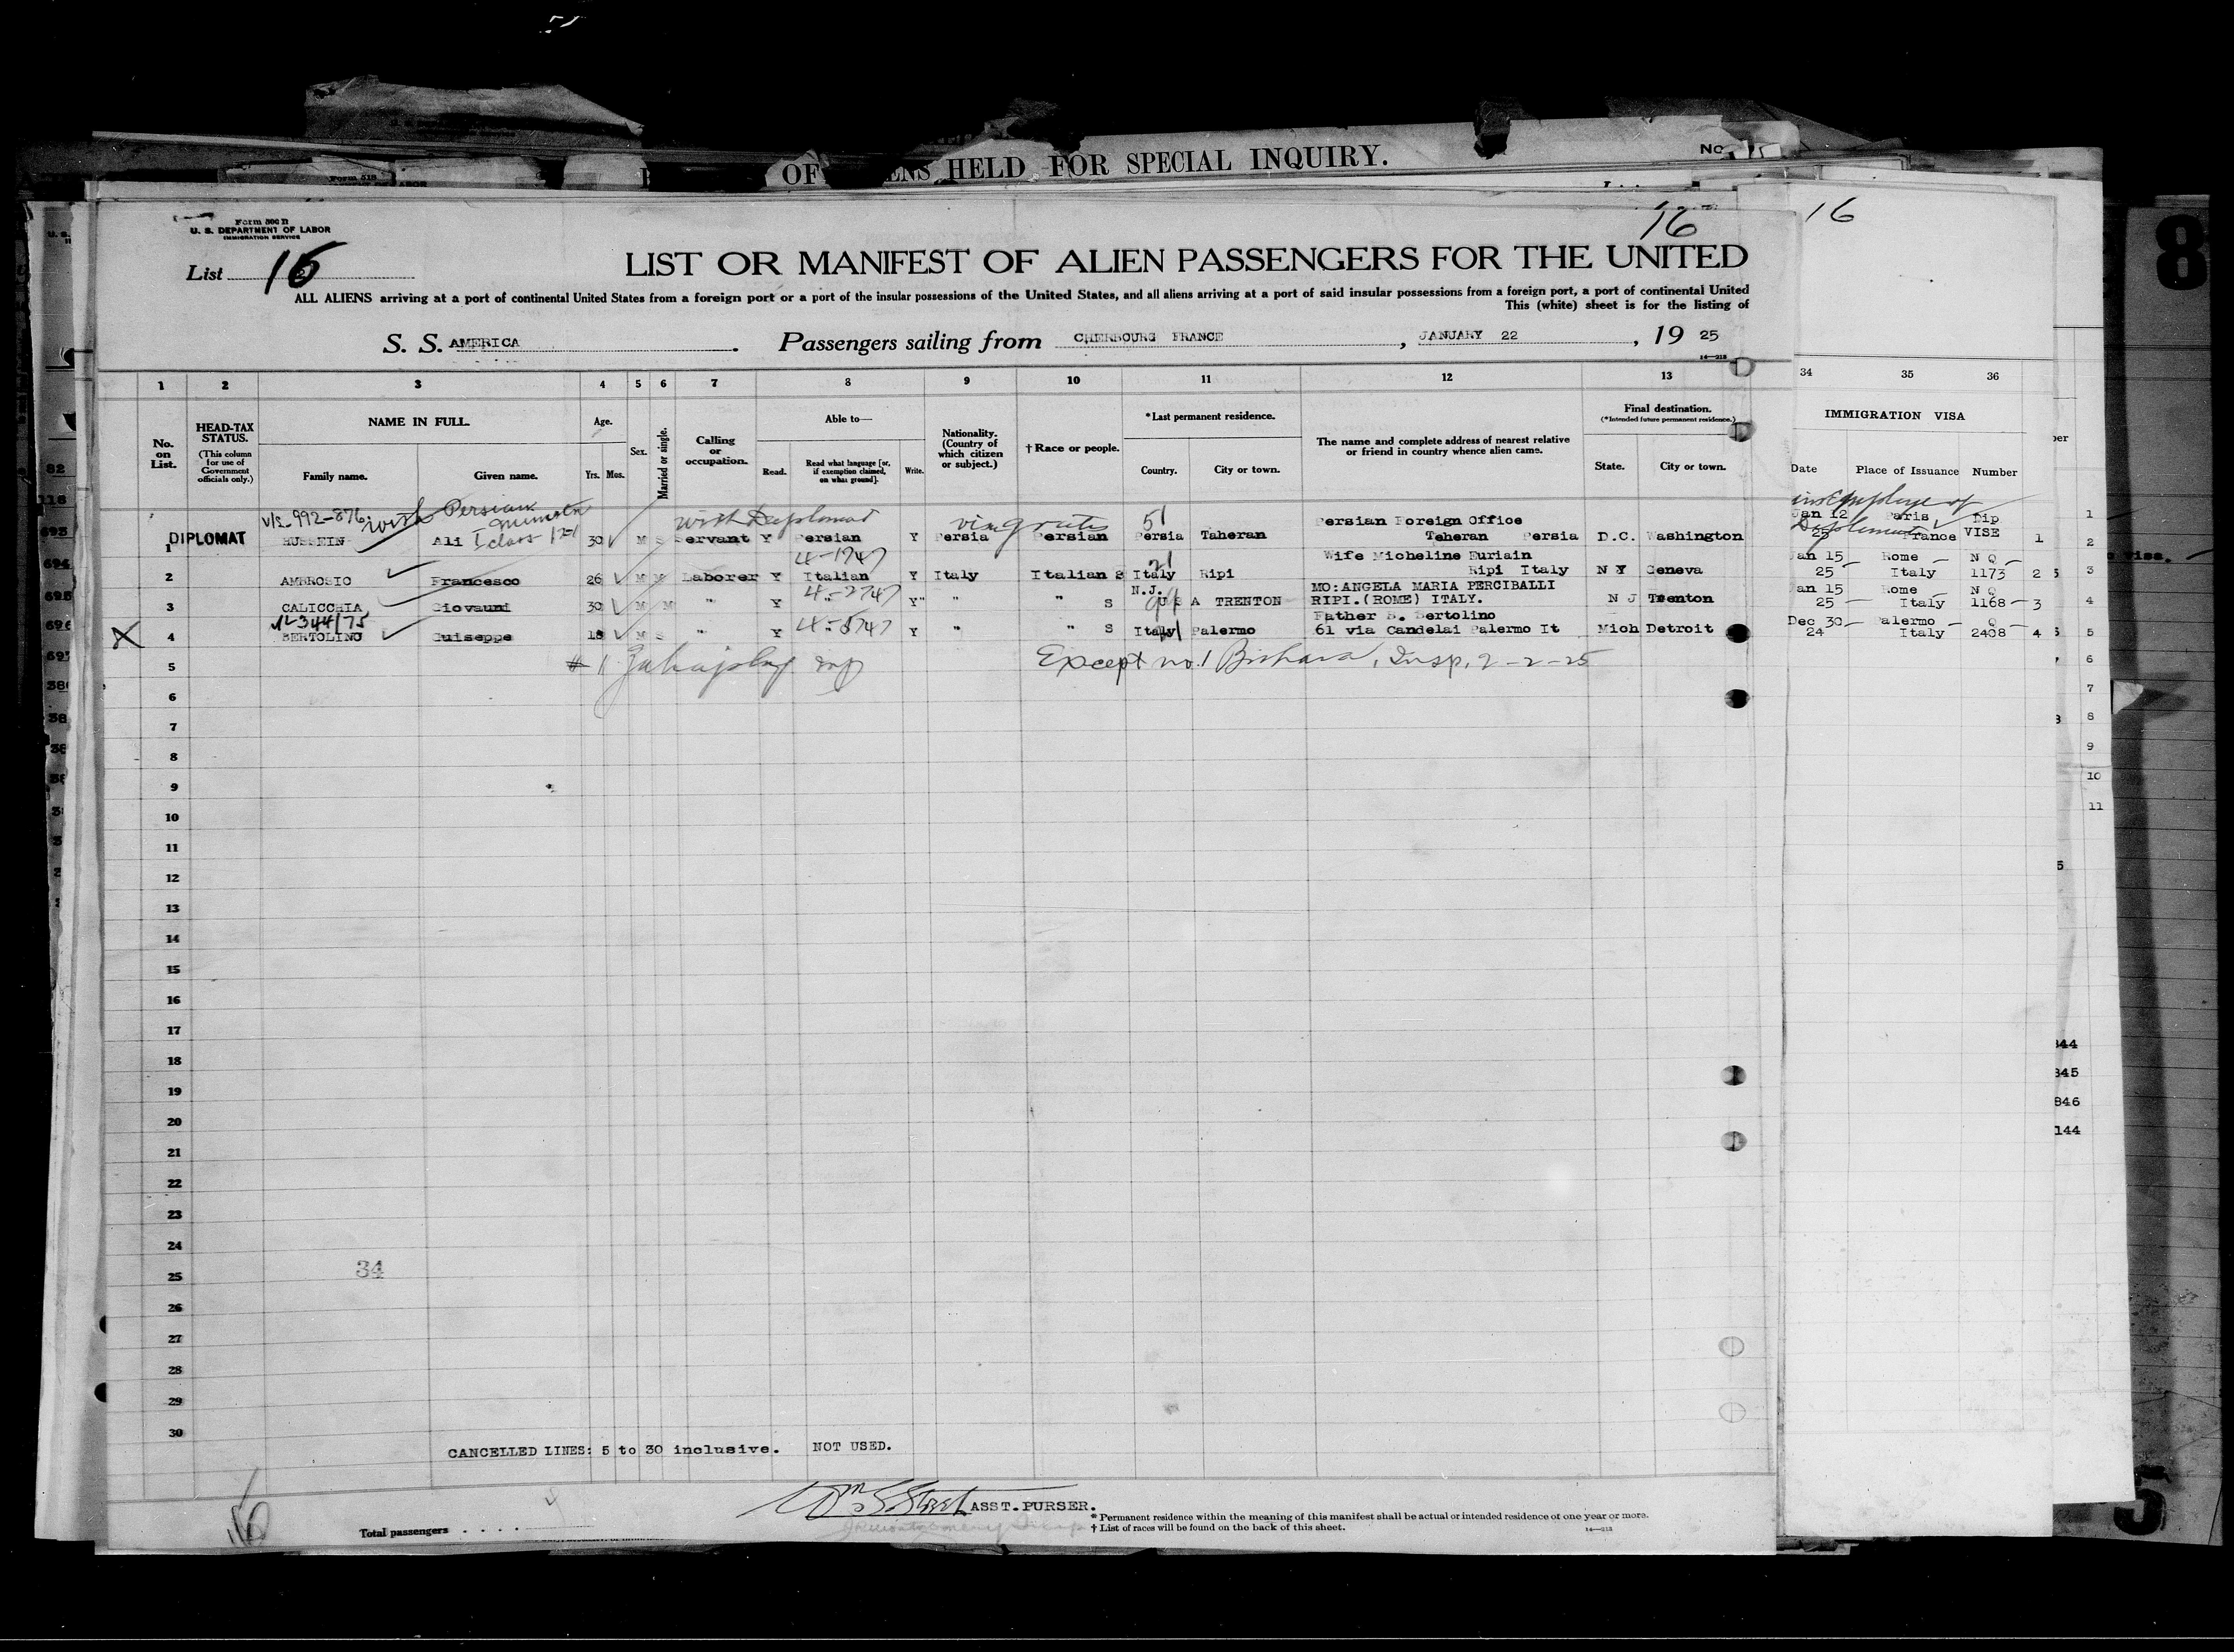 OF
ENS HELD FOR SPECIAL INQUIRY.
No
Form 500 B
U. S. DEPARTMENT OF LABOR
IMMIGRATION SERVICE
16
16
List 16
LIST OR MANIFEST OF ALIEN PASSENGERS FOR THE UNITED
ALL ALIENS arriving at a port of continental United States from a foreign port or a port of the insular possessions of the United States, and all aliens arriving at a port of said insular possessions from a foreign port, a port of continental United
This (white) sheet is for the listing of
S. S. AMERICA. Passengers sailing from CHERBOURG FRANCE, JANUARY 22, 19 25
1 2 3 4 5 6 7 8 9 10 11 12 13 34 35 36
No. on List. HEAD-TAX STATUS. (This column for use of Government officials only.) NAME IN FULL. Family name. Given name. Age. Yrs. Mos. Sex. Married or single. Calling or occupation. Able to— Read. Read what language [or, if exemption claimed, on what ground]. Write. Nationality. (Country of which citizen or subject.) † Race or people. *Last permanent residence. Country. City or town. The name and complete address of nearest relative or friend in country whence alien came. Final destination. (*Intended future permanent residence.) State. City or town. IMMIGRATION VISA Date Place of Issuance Number
V/s-992-876 with Persian Minister I class with Diplomat 51 Persian Foreign Office Jan 12 Paris Dip
1 DIPLOMAT HUSSEIN Ali 30 M S Servant Y Persian Y Persia Persian Persia Taheran Teheran Persia D.C. Washington 25 France VISE 1
4-1747 21 Wife Micheline Euriain Jan 15 Rome N Q
2 AMBROSIO Francesco 26 M M Laborer Y Italian Y Italy Italian S Italy Ripi Ripi Italy N Y Geneva 25 Italy 1173 2
4-2747 N.J. MO:ANGELA MARIA PERCIBALLI Jan 15 Rome N Q
3 CALICCHIA Giovanni 30 M M " Y " Y " " S U S A TRENTON RIPI.(ROME) ITALY. N J Trenton 25 Italy 1168 3
344/75 Father S. Bertolino Dec 30 Palermo Q
X 4 BERTOLINO Guiseppe 18 M S " Y " Y " " S Italy Palermo 61 via Candelai Palermo It Mich Detroit 24 Italy 2408 4
5 # 1 Except no. 1 Bishara, Insp. 2-2-25
6
7
8
9
10
11
12
13
14
15
16
17
18
19
20
21
22
23
24
25 34
26
27
28
29
30
CANCELLED LINES: 5 to 30 inclusive. NOT USED.
ASST. PURSER.
Total passengers . . . .
* Permanent residence within the meaning of this manifest shall be actual or intended residence of one year or more.
† List of races will be found on the back of this sheet.
8
5